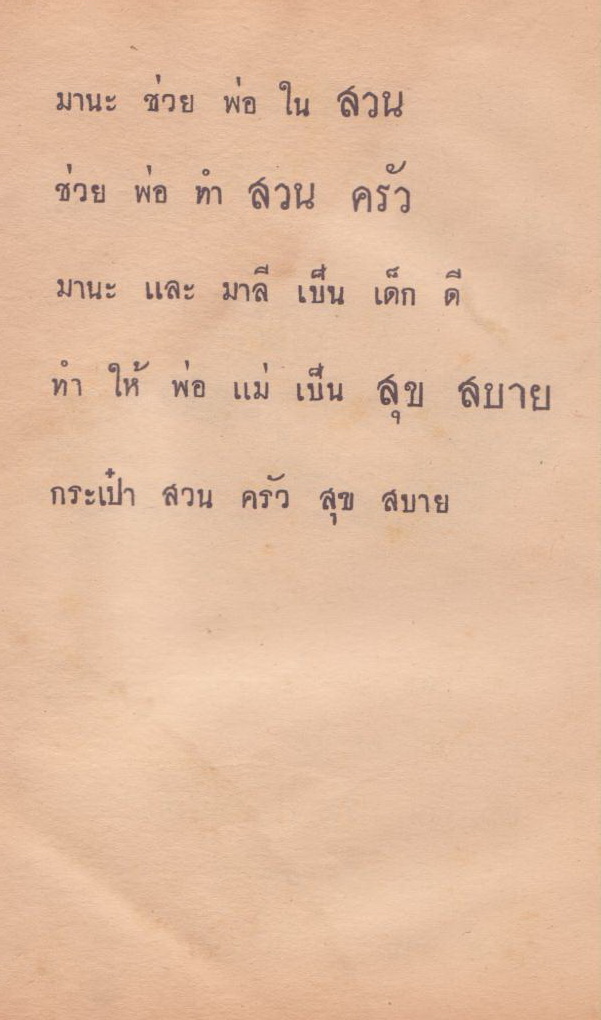 มานะ ช่วย พ่อ ใน สวน
ช่วย พ่อ ทำ สวน ครัว
มานะ และ มาลี เป็น เด็ก ดี
ทำ ให้ พ่อ แม่ เป็น สุข สบาย
กระเป๋า สวน ครัว สุข สบาย